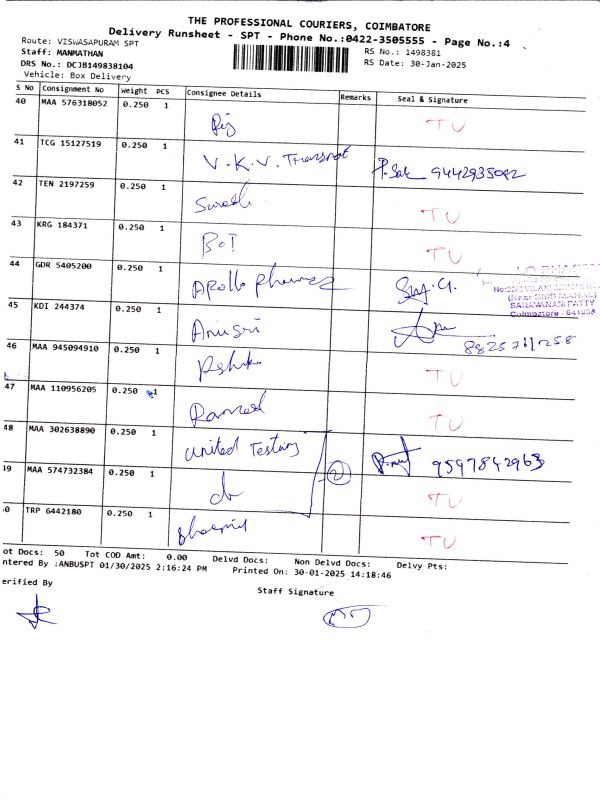 THE PROFESSIONAL COURIERS, COIMBATORE
Delivery Runsheet - SPT - Phone No.:0422-3505555 - Page No.:4
Route: VISWASAPURAM SPT
RS No.: 1498381
Staff: MANMATHAN
RS Date: 30-Jan-2025
DRS No.: DCJB149838104
Vehicle: Box Delivery
S No Consignment No Weight PCS Consignee Details Remarks Seal & Signature
40 MAA 576318052 0.250 1 TU
41 TCG 15127519 0.250 1 V.K.V. Transpot 9442935092
42 TEN 2197259 0.250 1 Suresh TU
43 KRG 184371 0.250 1 BOI TU
44 GDR 5405200 0.250 1 Apollo
SARAVANAM PATTY
Coimbatore - 641035
45 KDI 244374 0.250 1 Anusri
8825711258
46 MAA 945094910 0.250 1 TU
47 MAA 110956205 0.250 1 Ramesh TU
48 MAA 302638890 0.250 1 United Testing 9597842963
49 MAA 574732384 0.250 1 do 2 TU
50 TRP 6442180 0.250 1 TU
ot Docs: 50 Tot COD Amt: 0.00 Delvd Docs: Non Delvd Docs: Delvy Pts:
ntered By :ANBUSPT 01/30/2025 2:16:24 PM Printed On: 30-01-2025 14:18:46
erified By
Staff Signature